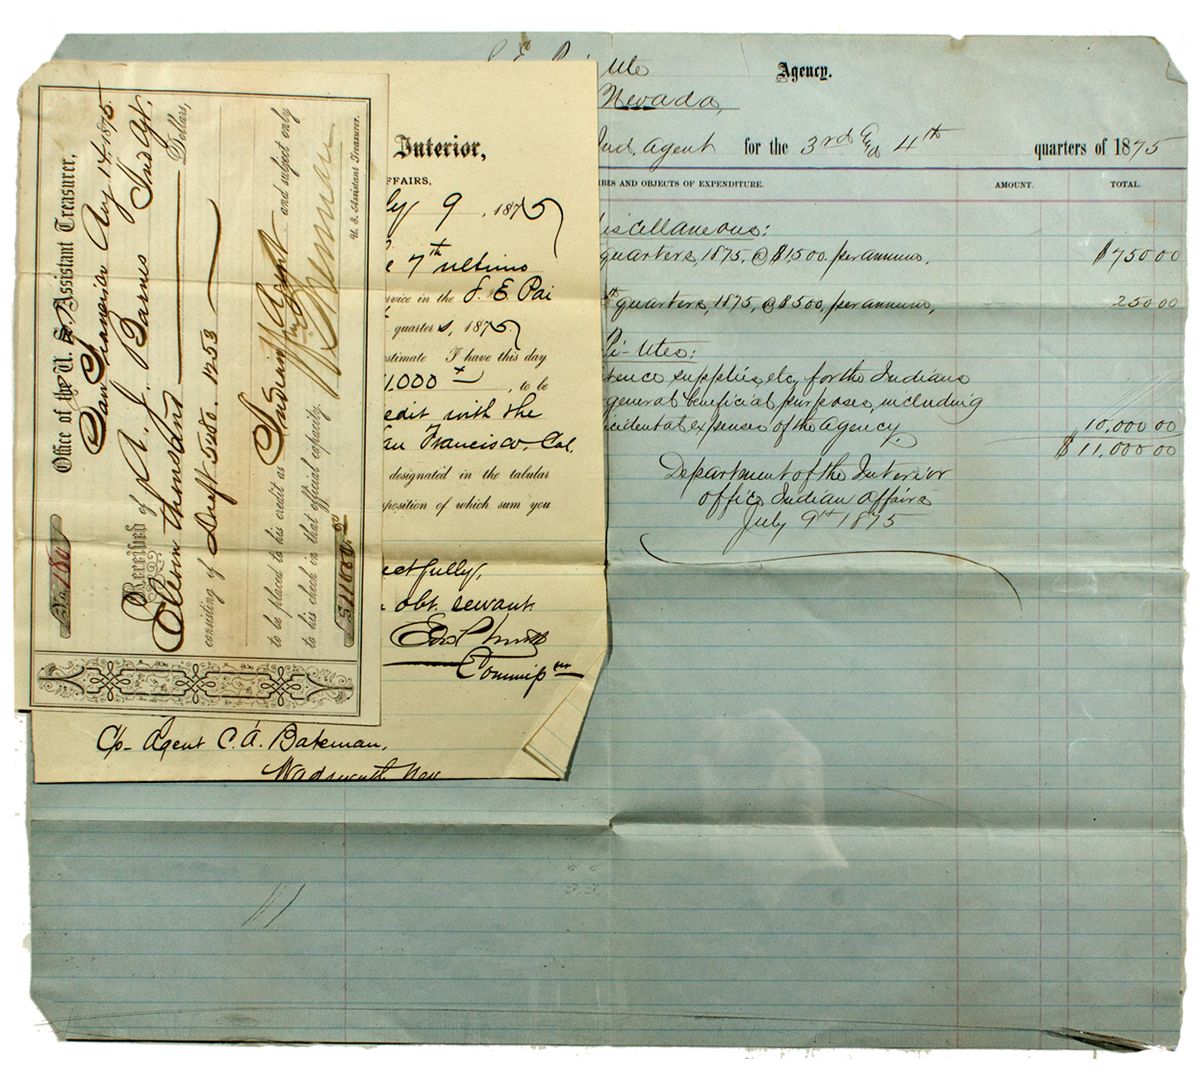 Office of the U. S. Assistant Treasurer,
San Francisco Aug 14 1875
Received of A. J. Barnes Ind Agt.
Eleven thousand Dollars,
consisting of Draft 1253
to be placed to his credit as Indian Agent and subject only
to his check in that official capacity.
$11000.00
U. S. Assistant Treasurer.
Interior,
FFAIRS,
ly 9, 1875
e 7th ultimo
rvice in the S. E. Pai
quarters, 1875
stimate I have this day
1,000 , to be
edit with the
an Francisco, Cal.
designated in the tabular
position of which sum you
ectfully,
obt. servant
Commisr
C/o Agent C. A. Bateman,
Wadsworth Nev
Ute Agency.
Nevada,
Ind. Agent for the 3rd & 4th quarters of 1875
AND OBJECTS OF EXPENDITURE. AMOUNT. TOTAL.
iscellaneous:
quarters, 1875, @ $1,500. per annum, $750 00
th quarters, 1875, @ $500. per annum, 250.00
Pi-Utes:
tence supplies, etc, for the Indians
general beneficial purposes, including
cidental expenses of the Agency 10,000 00
$11,000 00
Department of the Interior
Office Indian Affairs
July 9th 1875